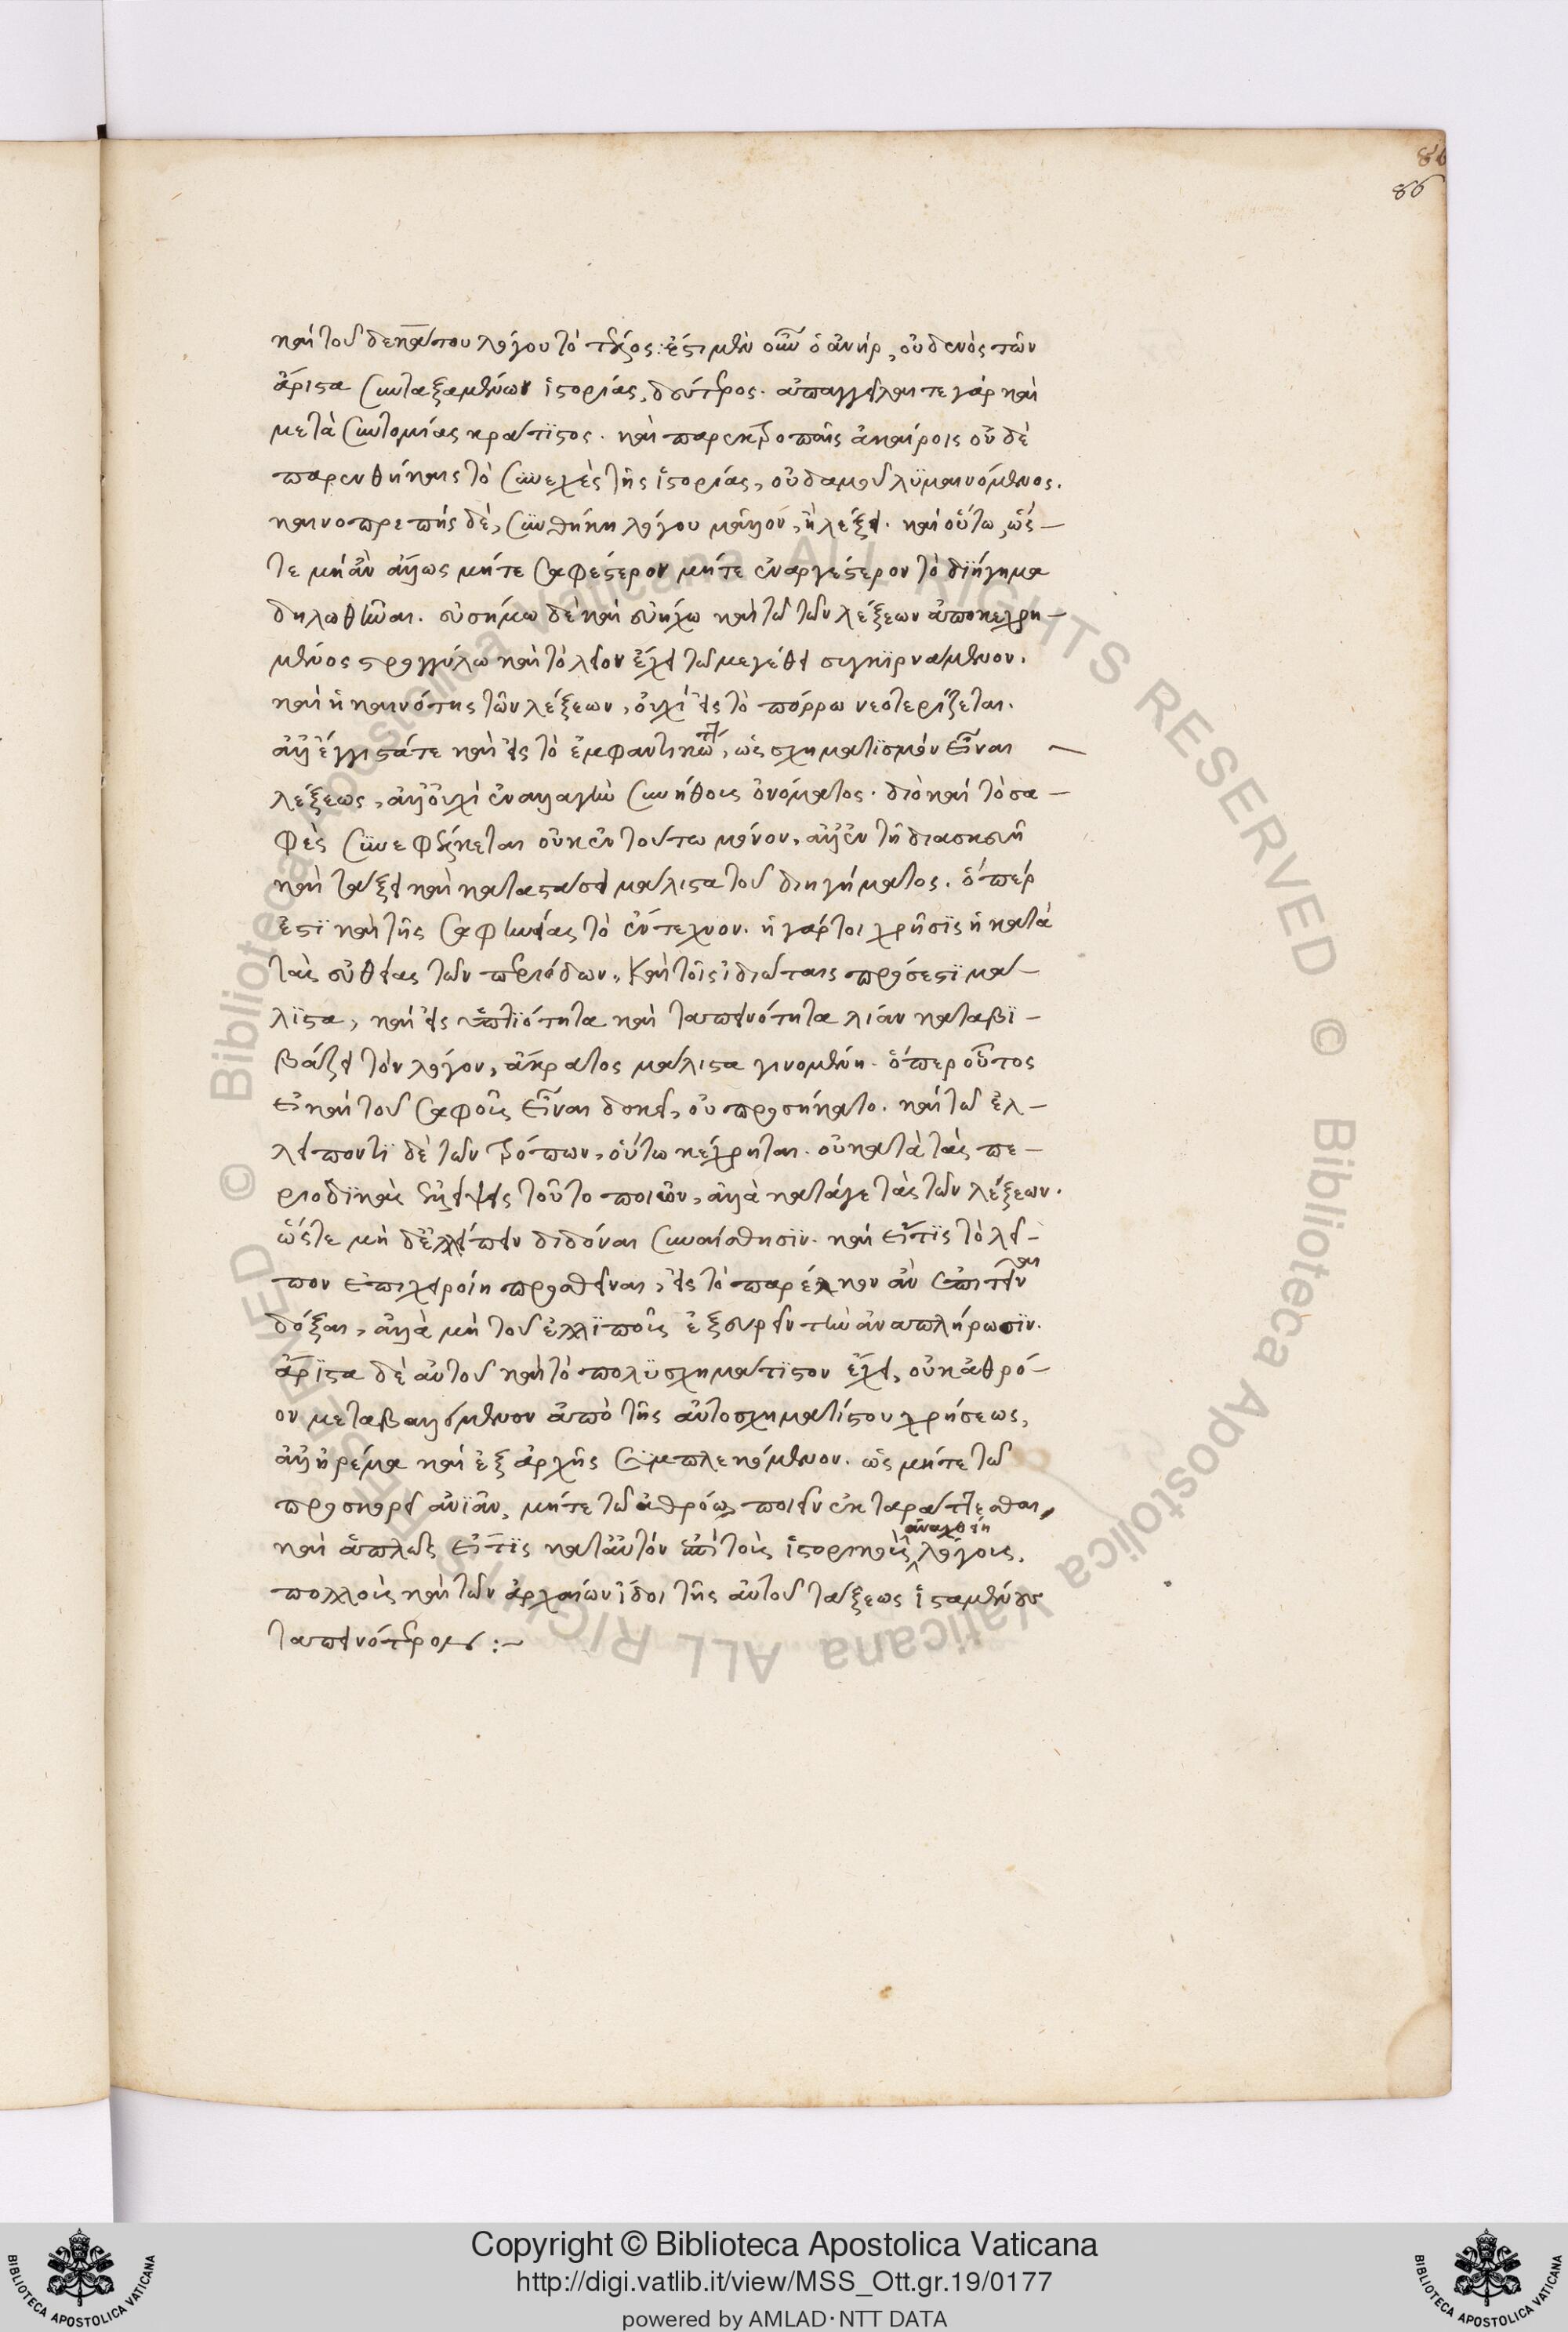 86
86
καὶ τοῦ δεκάτου λόγου τὸ τέλος: ἔστι μὲν οὖν ὁ ἀνὴρ, οὐδενὸς τῶν
ἄριστα συνταξαμένων ἱστορίας, δεύτερος. ἀπαγγεῖλαι τε γὰρ καὶ
μετὰ συντομίας κράτιστος. καὶ παρεκτροπαῖς ἀκαίροις οὐδὲ
παρενθήκαις τὸ συνεχὲς τῆς ἱστορίας, οὐδαμοῦ λυμαινόμενος.
καινοπρεπὴς δὲ, συνθήκη λόγου μᾶλλον, ἢ λέξει. καὶ οὕτω, ὡσ-
τε μὴ ἂν ἄλλως μήτε σαφέστερον μήτε ἐναργέστερον τὸ διήγημα
δηλωθῆναι. εὐσήμω δὲ καὶ εὐήχω καὶ τῶ τῶν λέξεων ἀποκεχρη-
μένος στρογγύλω καὶ τὸ λεῖον ἔχει τῶ μεγέθει συγκιρνάμενον.
καὶ ἡ καινότης τῶν λέξεων, οὐχὶ εἰς τὸ πόρρω νεοτερίζεται.
ἀλλ' ἔγγιστά τε καὶ εἰς τὸ ἐμφαντικώτ, ὡς σχηματισμὸν εἶναι
λέξεως, ἀλλ' οὐχὶ ἐναλλαγὴν συνήθους ὀνόματος. διὸ καὶ τὸ σα-
φὲς συνεφέλκεται οὐκ ἐν τούτω μόνον, ἀλλ' ἐν τῆ διασκευῆ
καὶ τάξει καὶ καταστάσει μάλιστα τοῦ διηγήματος. ὅπέρ
ἐστι καὶ τῆς σαφηνείας τὸ ἔντεχνον. ἡ γάρ τοι χρῆσις ἡ κατὰ
τὰς εὐθείας τῶν περιόδων, καὶ τοῖς ἰδιώταις πρόσεστι μά-
λιστα, καὶ εἰς ὑπτιότητα καὶ ταπεινότητα λίαν καταβι-
βάζει τὸν λόγον, ἄκρατος μάλιστα γινομένη. ὅπερ οὗτος
εἰ καὶ τοῦ σαφοῦς εἶναι δοκεῖ, οὐ προσήκατο. καὶ τῶ ἐλ-
λείποντι δὲ τῶν τρόπων, οὕτω κέχρηται. οὐ κατὰ τὰς πε-
ριοδικὰς ἐλλείψεις τοῦτο ποιῶν, ἀλλὰ κατά γε τὰς τῶν λέξεων.
ὥστε μὴ δὲ ἐλλείπειν διδόναι συναίσθησιν. καὶ εἴ τις τὸ λεῖ-
πον ἐπιχειροίη προσθεῖναι, εἰς τὸ παρέλκον ἂν ἐμπίπτειν
δόξαι, ἀλλὰ μὴ τοῦ ἐλλιποῦς ἐξευρεῖν τὴν ἀναπλήρωσιν.
ἄριστα δὲ αὐτοῦ καὶ τὸ πολυσχημάτιστον ἔχει, οὐκ ἀθρό-
ον μεταβαλλόμενον ἀπὸ τῆς αὐτοσχηματίστου χρήσεως,
ἀλλ' ἠρέμα καὶ ἐξ ἀρχῆς συμπλεκόμενον. ὡς μήτε τῶ
προσκορεῖ ἀνιᾶν, μήτε τῶ ἀθρόω ποιεῖν ἐκταράττεσθαι,
καὶ ἁπλῶς εἴ τις κατ' αὐτὸν ἐπὶ τοῖς ἱστορικοῖς ἀναχθείη λόγοις,
πολλοὺς καὶ τῶν ἀρχαίων ἴδοι τῆς αὐτοῦ τάξεως ἱσταμένους
ταπεινότερον :~
Copyright © Biblioteca Apostolica Vaticana
http://digi.vatlib.it/view/MSS_Ott.gr.19/0177
powered by AMLAD·NTT DATA